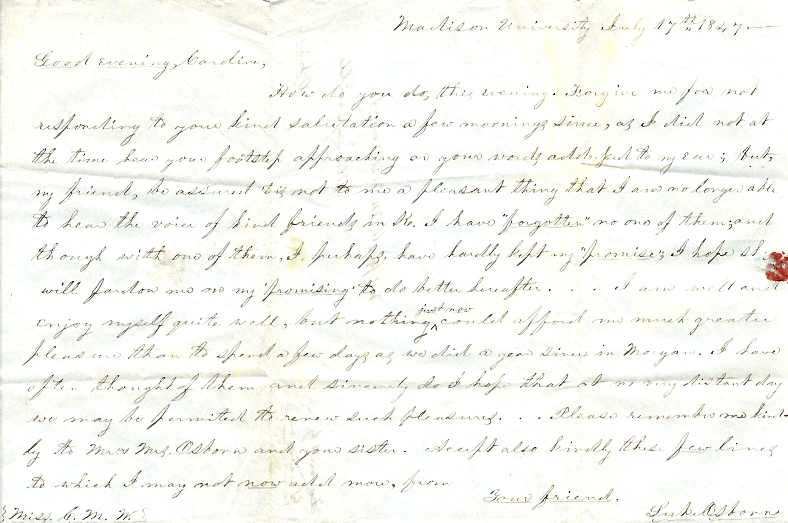 Madison University July 17th 1847—
Good Evening, Cardin,
How do you do, this evening. Forgive me for not
responding to your kind salutation a few mornings since, as I did not at
the time hear your footstep approaching or your words addressed to my ear; but,
my friend, be assured 'tis not to me a pleasant thing that I am no longer able
to hear the voice of kind friends in Ke. I have "forgotten" no one of them; and
though with one of them, I, perhaps, have hardly kept my "promise", I hope she
will pardon me on my "promising" to do better hereafter. . . . I am well and
enjoy myself quite well, but nothing just now could afford me much greater
pleasure than to spend a few days as we did a year since in Morgan. I have
often thought of them and sincerely do I hope that at no very distant day
we may be permitted to renew such pleasures. . . Please remember me kind-
ly to Mr & Mrs. Osborn and your sister. Accept also kindly these few lines
to which I may not now add more, from
Your friend,
Luke Osborn
Miss. C. M. W.